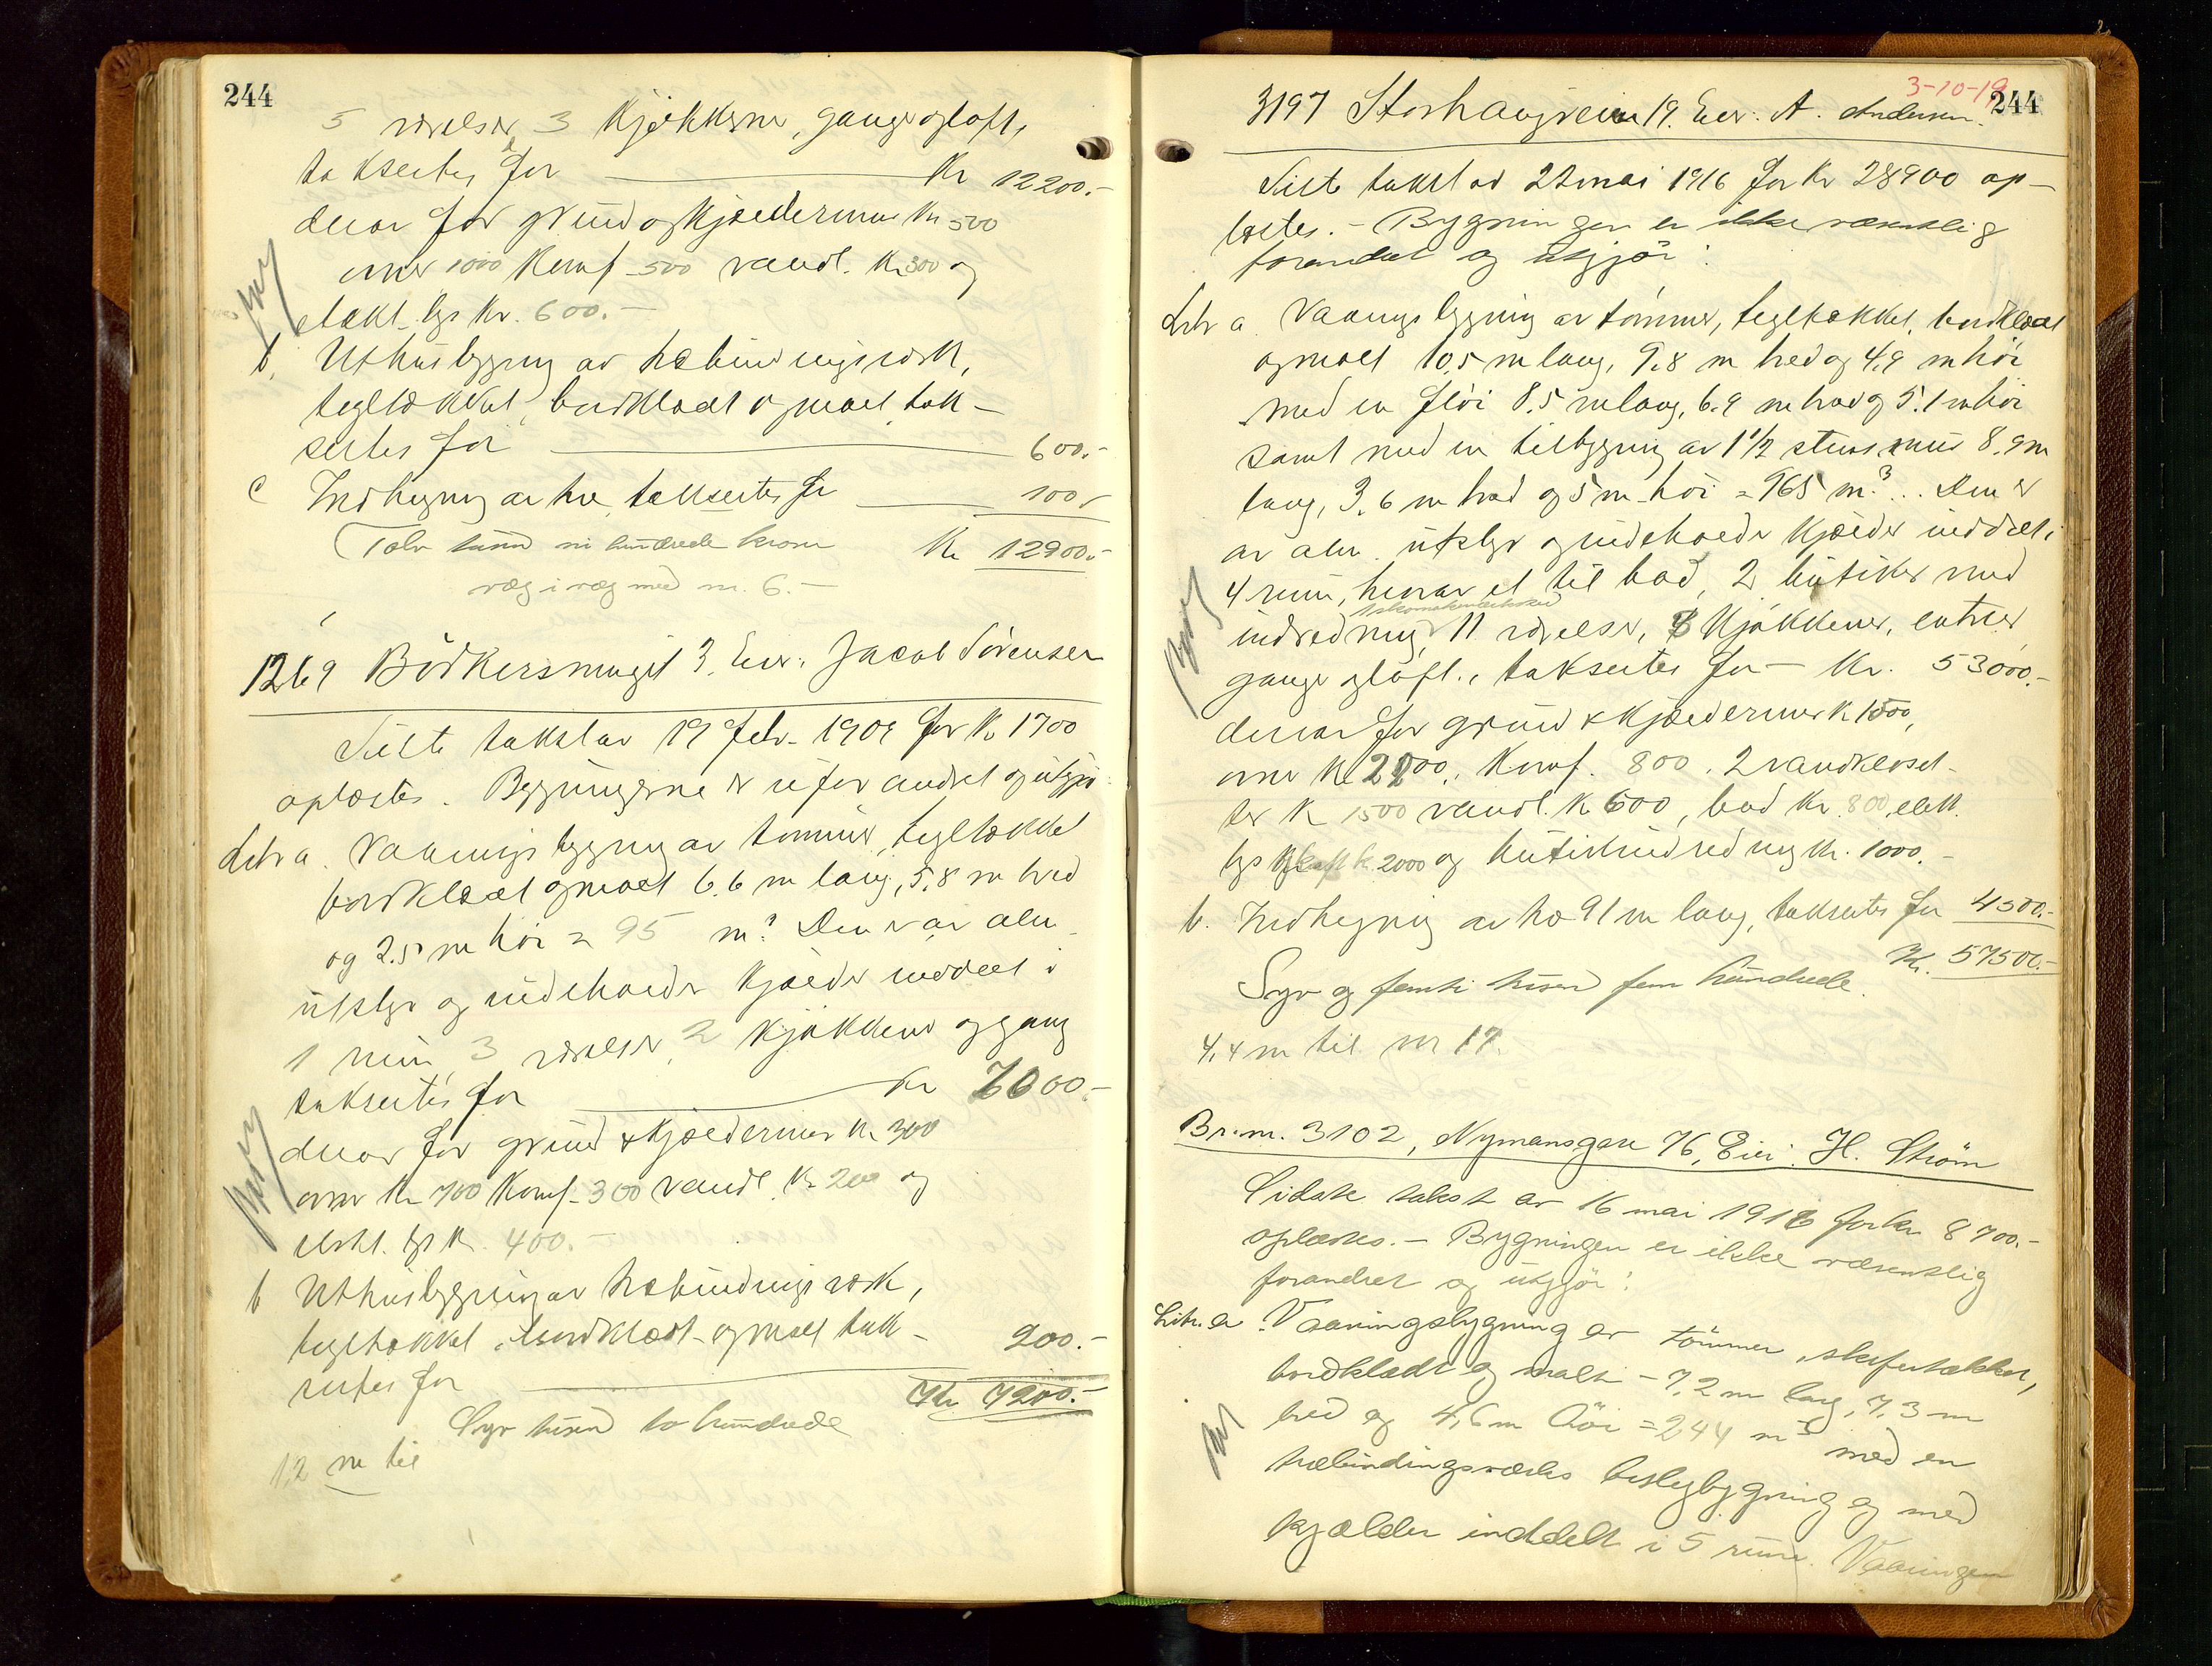 244
5 værelser, 3 kjøkkener, gange og loft,
takseertes for Kr 12200.-
derav for grund og kjældermur Kr 500
ovner 1000 Komf. 500 vandl. Kr 300 og
elekt. lys Kr. 600.-
b. Uthusbygning av træbindingsverk,
tegltækket, bordklædt og malt tak-
sertes for 600.-
c Indhegning av træ takseertes for 100.-
(Tolv tusind ni hundrede kroner Kr 12900.-
væg i væg med nr. 6.-
1269 Bödkersmuget 3. Eier. Jacob Sörensen
Siste takst av 19 febr. 1909 for Kr 1700
oplæstes. Bygningerne er uforandret og utgjör
Litr a. Vaaningsbygning av tömmer, tegltækket
bordklædt og malt 6,6 m lang, 5,8 m bred
og 2.5 m høi = 95 m³. Den var alm.
utstyr og indeholder kjælder inddelt i
1 rum, 3 værelser, 2 kjøkkener og gang
takseertes for Kr 7000.-
derav for grund & kjældermur Kr. 300
ovner Kr 700 Komf. 300 vandl. Kr 200 og
elekt. lys Kr. 400.-
b Uthusbygning av træbindingsverk,
tegltækket, bordklædt og malt tak-
sertes for 200.-
Kr 7200.-
Syv tusind to hundrede
1,2 m til
3-10-19
244
3197 Storhaugveien 19. Eier. A. Andersen.
Siste takst av 22 mai 1916 for Kr 28900 op-
læstes. - Bygningen er ikke væsentlig
forandret og utgjör:
Litr a Vaaningsbygning av tömmer, tegltækket, bordklædt
og malt 10,5 m lang, 9,8 m bred og 4,9 m høi
med en fløi 8,5 m lang, 6,9 m bred og 5,1 m høi
samt med en tilbygning av 1 1/2 stens mur 8,9 m
lang, 3,6 m bred og 5 m høi = 965 m³. Den er
av alm. utstyr og indeholder kjælder inddelt i
4 rum, hvorav et til bad, 2 butiker med
indredning, 11 værelser, 8 kjøkkener, entreer
gange og loft, takseertes for - Kr. 53000.-
derav for grund & kjældermur Kr 1500,
ovner Kr 2200, Komf. 800. 2 vandkloset-
ter Kr 1500 vandl. Kr 600, bad Kr. 800, elekt.
lys kraft Kr 2000 og butikindredning Kr. 1000.-
b. Indhegning av træ 91 m lang, takseertes for 4500.-
Kr. 57500.-
Syv og femti tusind fem hundrede.
4,4 m til nr 17.
Br. nr. 3102, Nymansgate 76, Eier: H. Ström
Sidste takst av 16 mai 1916 for kr 8700.-
oplæstes. - Bygningen er ikke væsentlig
forandret og utgjör:
Litr. a Vaaningsbygning av tömmer, skifertækket,
bordklædt og malt - 7,2 m lang, 7,3 m
bred og 4,6 m höi = 244 m³ med en
træbindingsverks bislagbygning og med
kjælder inddelt i 5 rum. Vaaningen